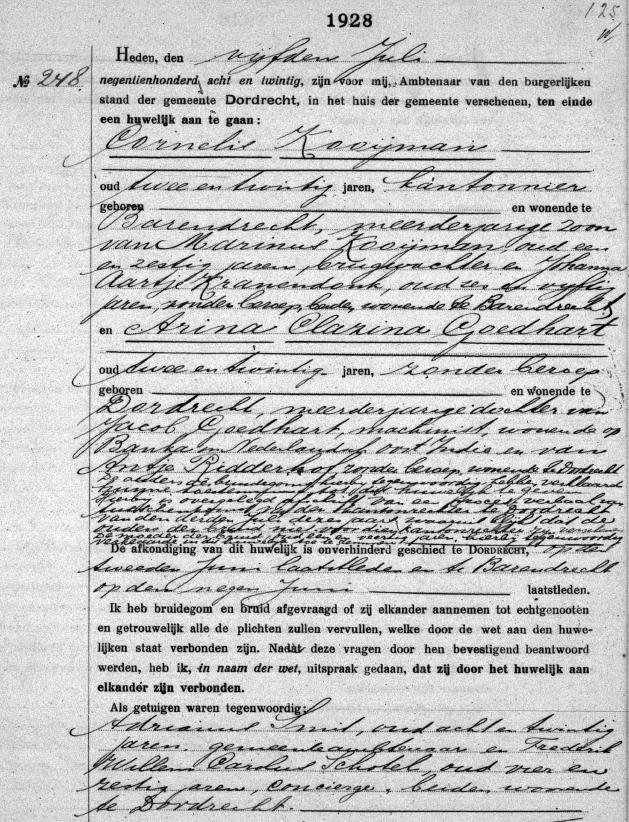 1928
125
Heden, den vijfden Juli
№ 248.
negentienhonderd acht en twintig, zijn voor mij, Ambtenaar van den burgerlijken
stand der gemeente Dordrecht, in het huis der gemeente verschenen, ten einde
een huwelijk aan te gaan:
Cornelis Kooijman
oud twee en twintig jaren, kantonnier
geboren en wonende te
Barendrecht, meerderjarige zoon
van Marinus Kooijman, oud een
en zestig jaren, brugwachter en Johanna
Aartje Kranendonk, oud zes en vijftig
jaren, zonder beroep, beiden wonende te Barendrecht
en Arina Clazina Goedhart
oud twee en twintig jaren, zonder beroep
geboren en wonende te
Dordrecht, meerderjarige dochter van
Jacob Goedhart, machinist, wonende op
Banka in Nederlandsch Oost Indie en van
Antje Ridderhof zonder beroep, wonende te Dordrecht
De ouders des bruidegoms hierbij tegenwoordig hebben verklaard
hunne toestemming tot dit huwelijk te geven
Hierbij is overgelegd een proces verbaal van
den kantonrechter te Dordrecht
van den derden Juli dezes jaars
De moeder der bruid, oud en veertig jaren, hierbij tegenwoordig
De afkondiging van dit huwelijk is onverhinderd geschied te Dordrecht, op den
tweeden Juni laatstleden en te Barendrecht
op den negen Juni laatstleden.
Ik heb bruidegom en bruid afgevraagd of zij elkander aannemen tot echtgenooten
en getrouwelijk alle de plichten zullen vervullen, welke door de wet aan den huwe-
lijken staat verbonden zijn. Nadat deze vragen door hen bevestigend beantwoord
werden, heb ik, in naam der wet, uitspraak gedaan, dat zij door het huwelijk aan
elkander zijn verbonden.
Als getuigen waren tegenwoordig:
Adrianus Smit, oud acht en twintig
jaren, gemeenteambtenaar en Frederik
Willem Carolus Schotel, oud vier en
zestig jaren, concierge, beiden wonende
te Dordrecht.